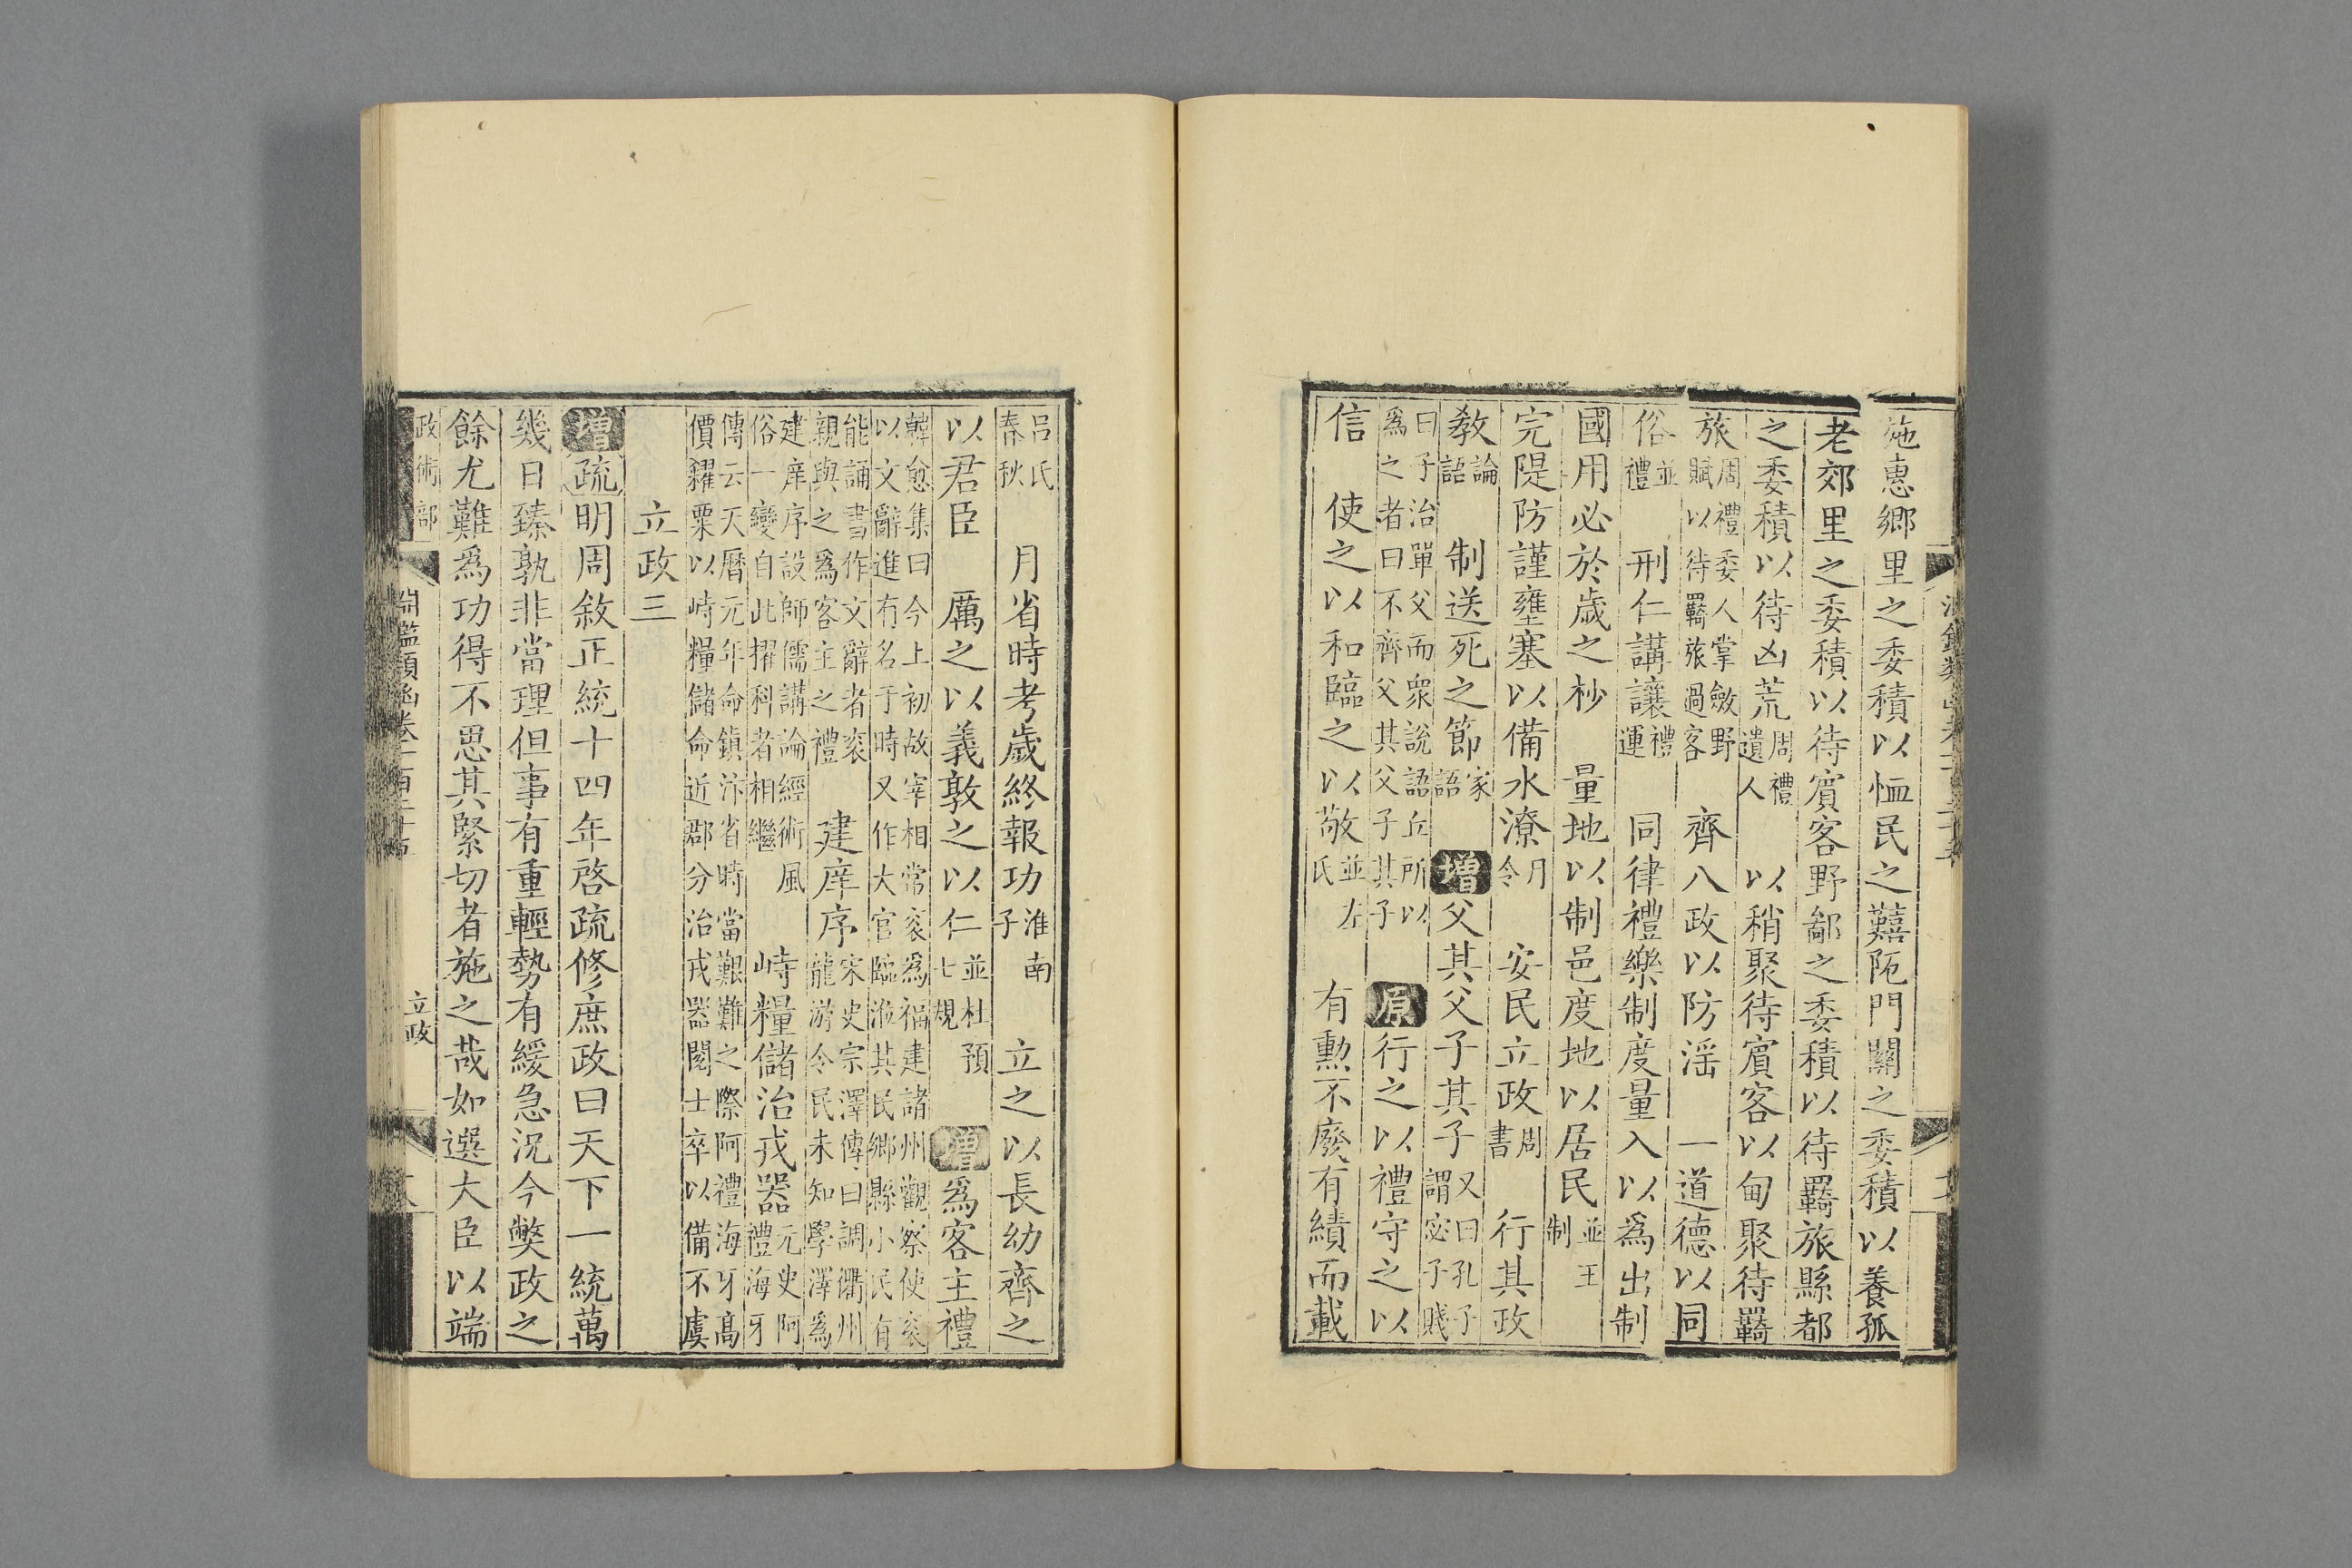 施惠鄉里之委積以恤民之囏阨門關之委積以養孤
老郊里之委積以待賓客野鄙之委積以待羈旅縣都
之委積以待凶荒周禮遺人 以稍聚待賓客以甸聚待羈
旅周禮委人掌斂野賦以待羈旅過客 齊八政以防淫 一道德以同
俗並禮 刑仁講讓禮運 同律禮樂制度量入以為出制
國用必於歲之杪 量地以制邑度地以居民並王制
完隄防謹壅塞以備水潦月令 安民立政周書 行其政
教論語 制送死之節家語 增父其父子其子又曰孔子謂宓子賤
曰子治單父而衆說語丘所以為之者曰不齊父其父子其子 原行之以禮守之以
信 使之以和臨之以敬並左氏 有勳不廢有績而載
呂氏春秋 月省時考歲終報功淮南子 立之以長幼齊之
以君臣 厲之以義敦之以仁並杜預七規 增為客主禮
韓愈集曰今上初故宰相常衮為福建諸州觀察使衮以文辭進有名于時又作大官臨涖其民鄉縣小民有
能誦書作文辭者衮親與之為客主之禮 建庠序宋史宗澤傳曰調衢州龍游令民未知學澤為
建庠序設師儒講論經術風俗一變自此擢科者相繼 峙糧儲治戎器元史阿禮海牙
傳云天曆元年命鎮汴省時當艱難之際阿禮海牙高價糴粟以峙糧儲命近郡分治戎器閱士卒以備不虞
立政三
增疏明周敘正統十四年啓疏修庶政曰天下一統萬
幾日臻孰非當理但事有重輕勢有緩急況今弊政之
餘尤難為功得不思其緊切者施之哉如選大臣以端
政術部 淵鑑類函卷一百二十五 立政